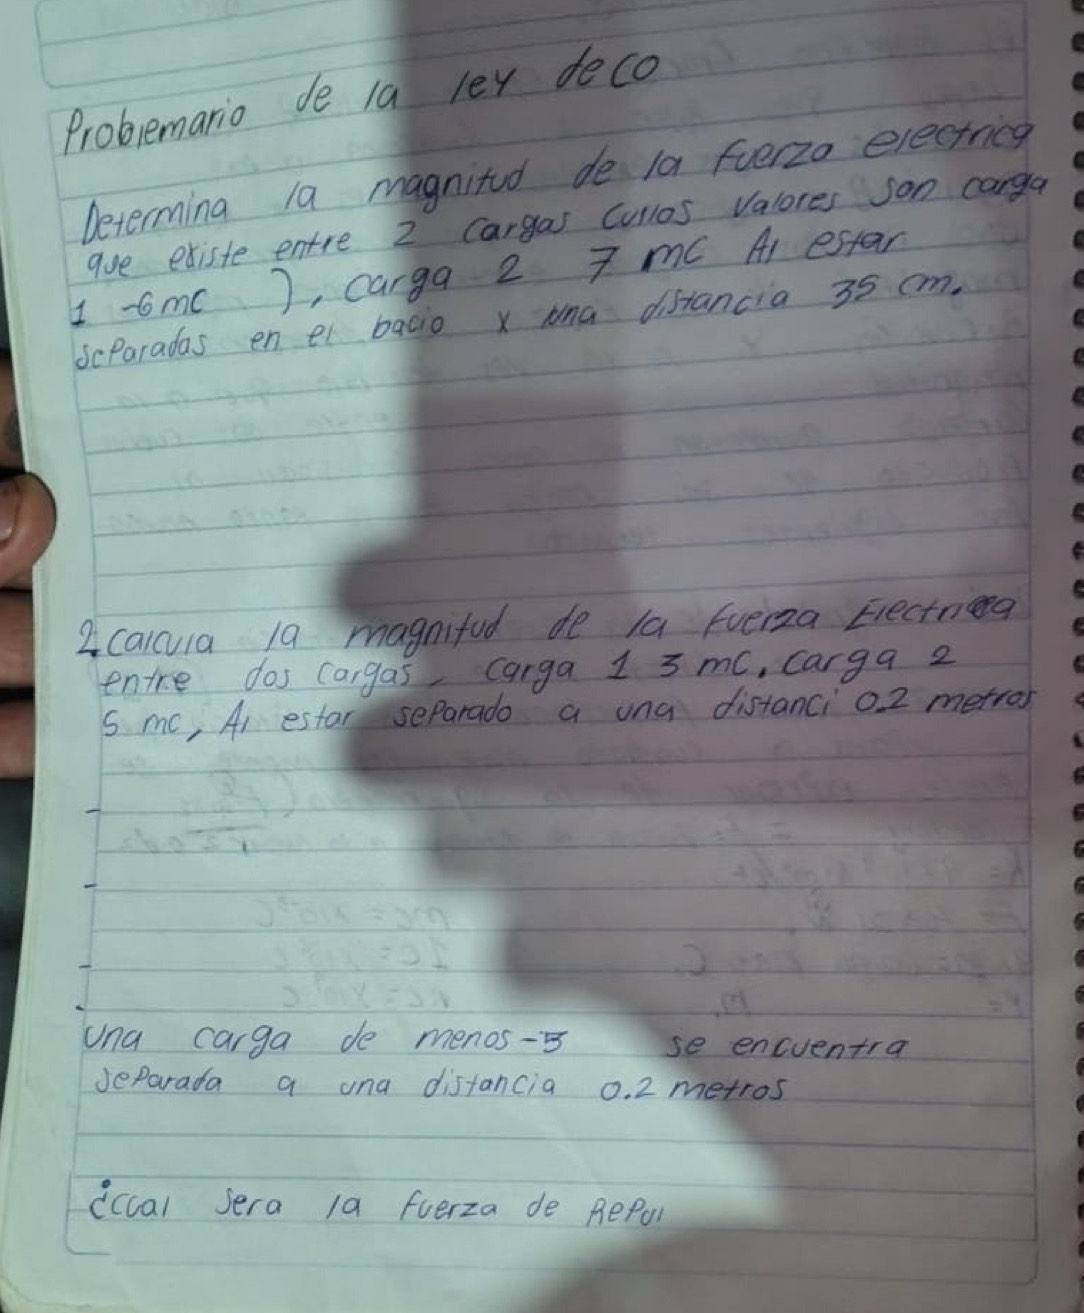 Problemario de la ley de co
Determina la magnitud de la fuerza electrica
que existe entre 2 cargas cullos valores son carga
1 -6 mc ), carga 2 7 mc Al estar
separadas en el bacio x una distancia 35 cm.
2 calcula la magnitud de la fuerza Electrica
entre dos cargas, carga 1 3 mc, carga 2
5 mc, Al estar separado a una distanci 0.2 metros
una carga de menos -5 se encuentra
separada a una distancia 0.2 metros
¿cual sera la fuerza de Repul